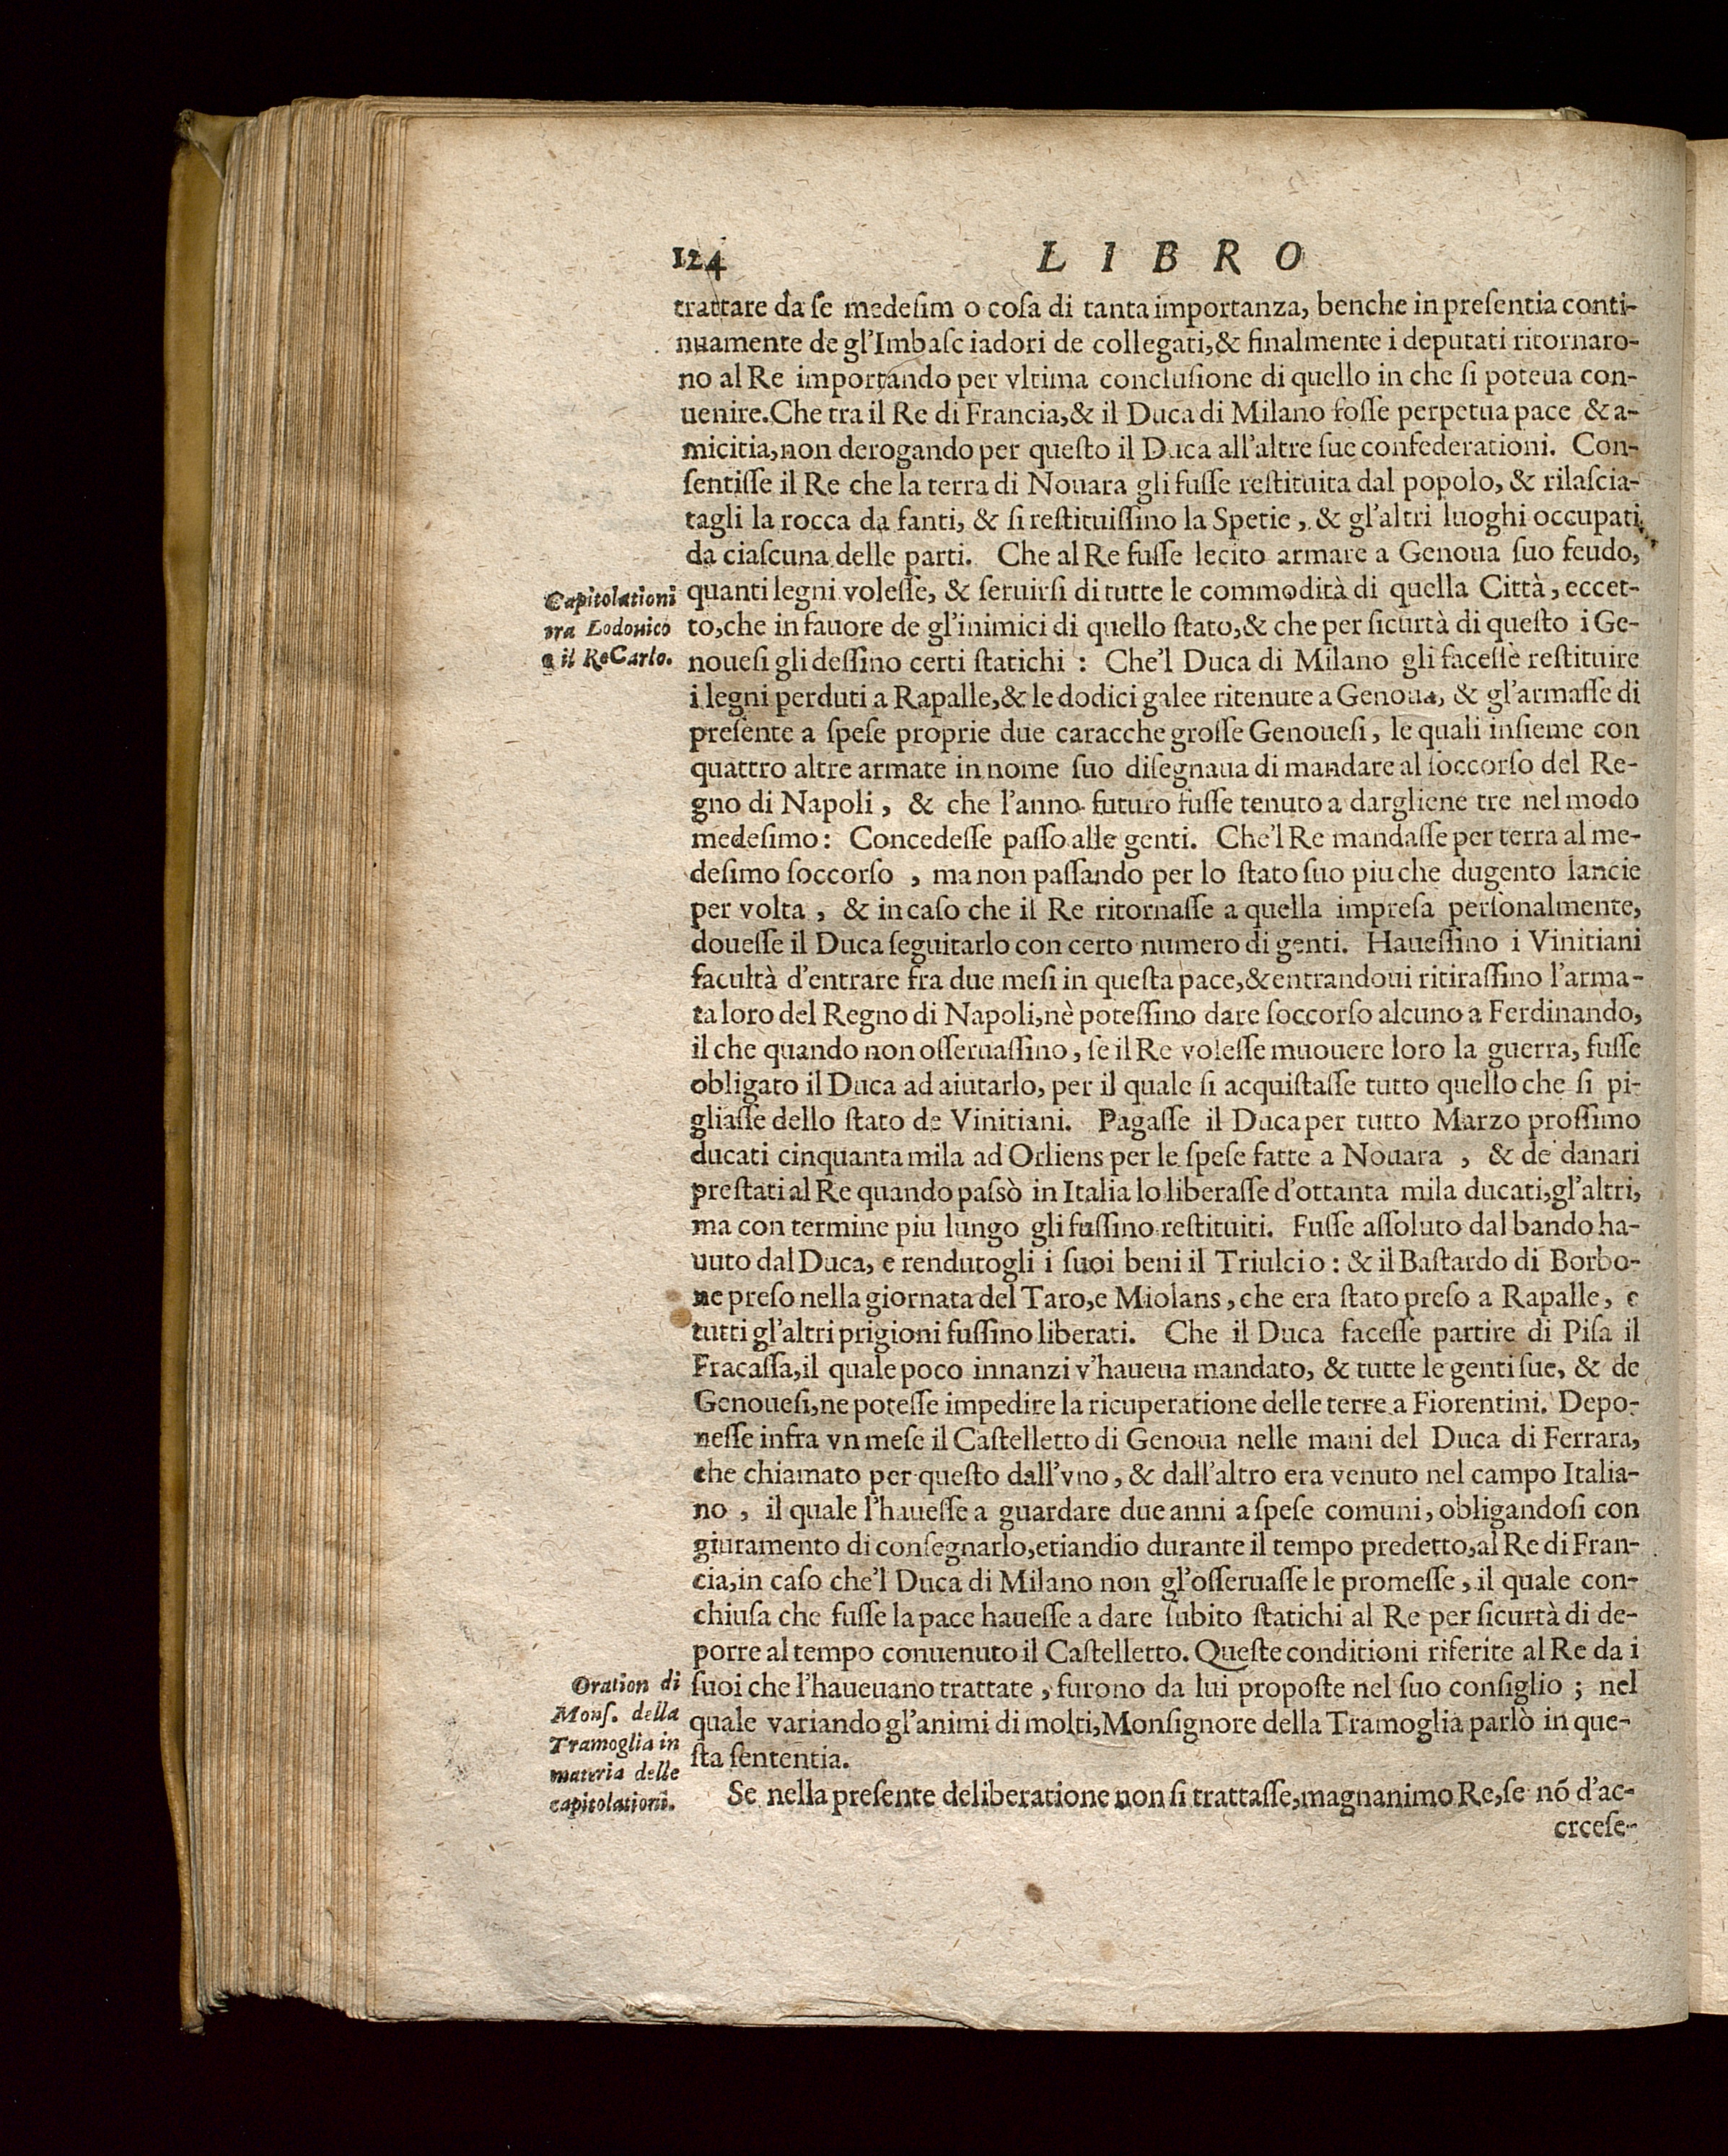 124 LIBRO
trattare da se medesim o cosa di tanta importanza, benche in presentia conti-
nuamente de gl'Imbasc iadori de collegati,& finalmente i deputati ritornaro-
no al Re importando per vltima conclusione di quello in che si poteua con-
uenire.Che tra il Re di Francia,& il Duca di Milano fosse perpetua pace & a-
micitia,non derogando per questo il Duca all'altre sue confederationi. Con-
sentisse il Re che la terra di Nouara gli fusse restituita dal popolo, & rilascia-
tagli la rocca da fanti, & si restituissino la Spetie, & gl'altri luoghi occupati
da ciascuna delle parti. Che al Re fusse lecito armare a Genoua suo feudo,
quanti legni volesse, & seruirsi di tutte le commodità di quella Città, eccet-
to,che in fauore de gl'inimici di quello stato,& che per sicurtà di questo i Ge-
nouesi gli dessino certi statichi : Che'l Duca di Milano gli facesse restituire
i legni perduti a Rapalle,& le dodici galee ritenute a Genoua, & gl'armasse di
presente a spese proprie due caracche grosse Genouesi, le quali insieme con
quattro altre armate in nome suo disegnaua di mandare al soccorso del Re-
gno di Napoli, & che l'anno futuro fusse tenuto a dargliene tre nel modo
medesimo: Concedesse passo alle genti. Che'l Re mandasse per terra al me-
desimo soccorso , ma non passando per lo stato suo piu che dugento lancie
per volta , & in caso che il Re ritornasse a quella impresa personalmente,
douesse il Duca seguitarlo con certo numero di genti. Hauessino i Vinitiani
facultà d'entrare fra due mesi in questa pace,& entrandoui ritirassino l'arma-
ta loro del Regno di Napoli,nè potessino dare soccorso alcuno a Ferdinando,
il che quando non osseruassino, se il Re volesse muouere loro la guerra, fusse
obligato il Duca ad aiutarlo, per il quale si acquistasse tutto quello che si pi-
gliasse dello stato de Vinitiani. Pagasse il Duca per tutto Marzo prossimo
ducati cinquanta mila ad Orliens per le spese fatte a Nouara , & de danari
prestati al Re quando passò in Italia lo liberasse d'ottanta mila ducati,gl'altri,
ma con termine piu lungo gli fussino restituiti. Fusse assoluto dal bando ha-
uuto dal Duca, e rendutogli i suoi beni il Triulcio : & il Bastardo di Borbo-
ne preso nella giornata del Taro,e Miolans, che era stato preso a Rapalle, e
tutti gl'altri prigioni fussino liberati. Che il Duca facesse partire di Pisa il
Fracassa,il quale poco innanzi v'haueua mandato, & tutte le genti sue, & de
Genouesi,ne potesse impedire la ricuperatione delle terre a Fiorentini. Depo-
nesse infra vn mese il Castelletto di Genoua nelle mani del Duca di Ferrara,
che chiamato per questo dall'vno, & dall'altro era venuto nel campo Italia-
no , il quale l'hauesse a guardare due anni a spese comuni, obligandosi con
giuramento di consegnarlo,etiandio durante il tempo predetto,al Re di Fran-
cia,in caso che'l Duca di Milano non gl'osseruasse le promesse, il quale con-
chiusa che fusse la pace hauesse a dare subito statichi al Re per sicurtà di de-
porre al tempo conuenuto il Castelletto. Queste conditioni riferite al Re da i
suoi che l'haueuano trattate, furono da lui proposte nel suo consiglio ; nel
quale variando gl'animi di molti,Monsignore della Tramoglia parlò in que-
sta sententia.
Se nella presente deliberatione non si trattasse,magnanimo Re,se nõ d'ac-
crcese-
Capitolationi
tra Lodouico
e il Re Carlo.
Oration di
Mons. della
Tramoglia in
materia delle
capitolationi.